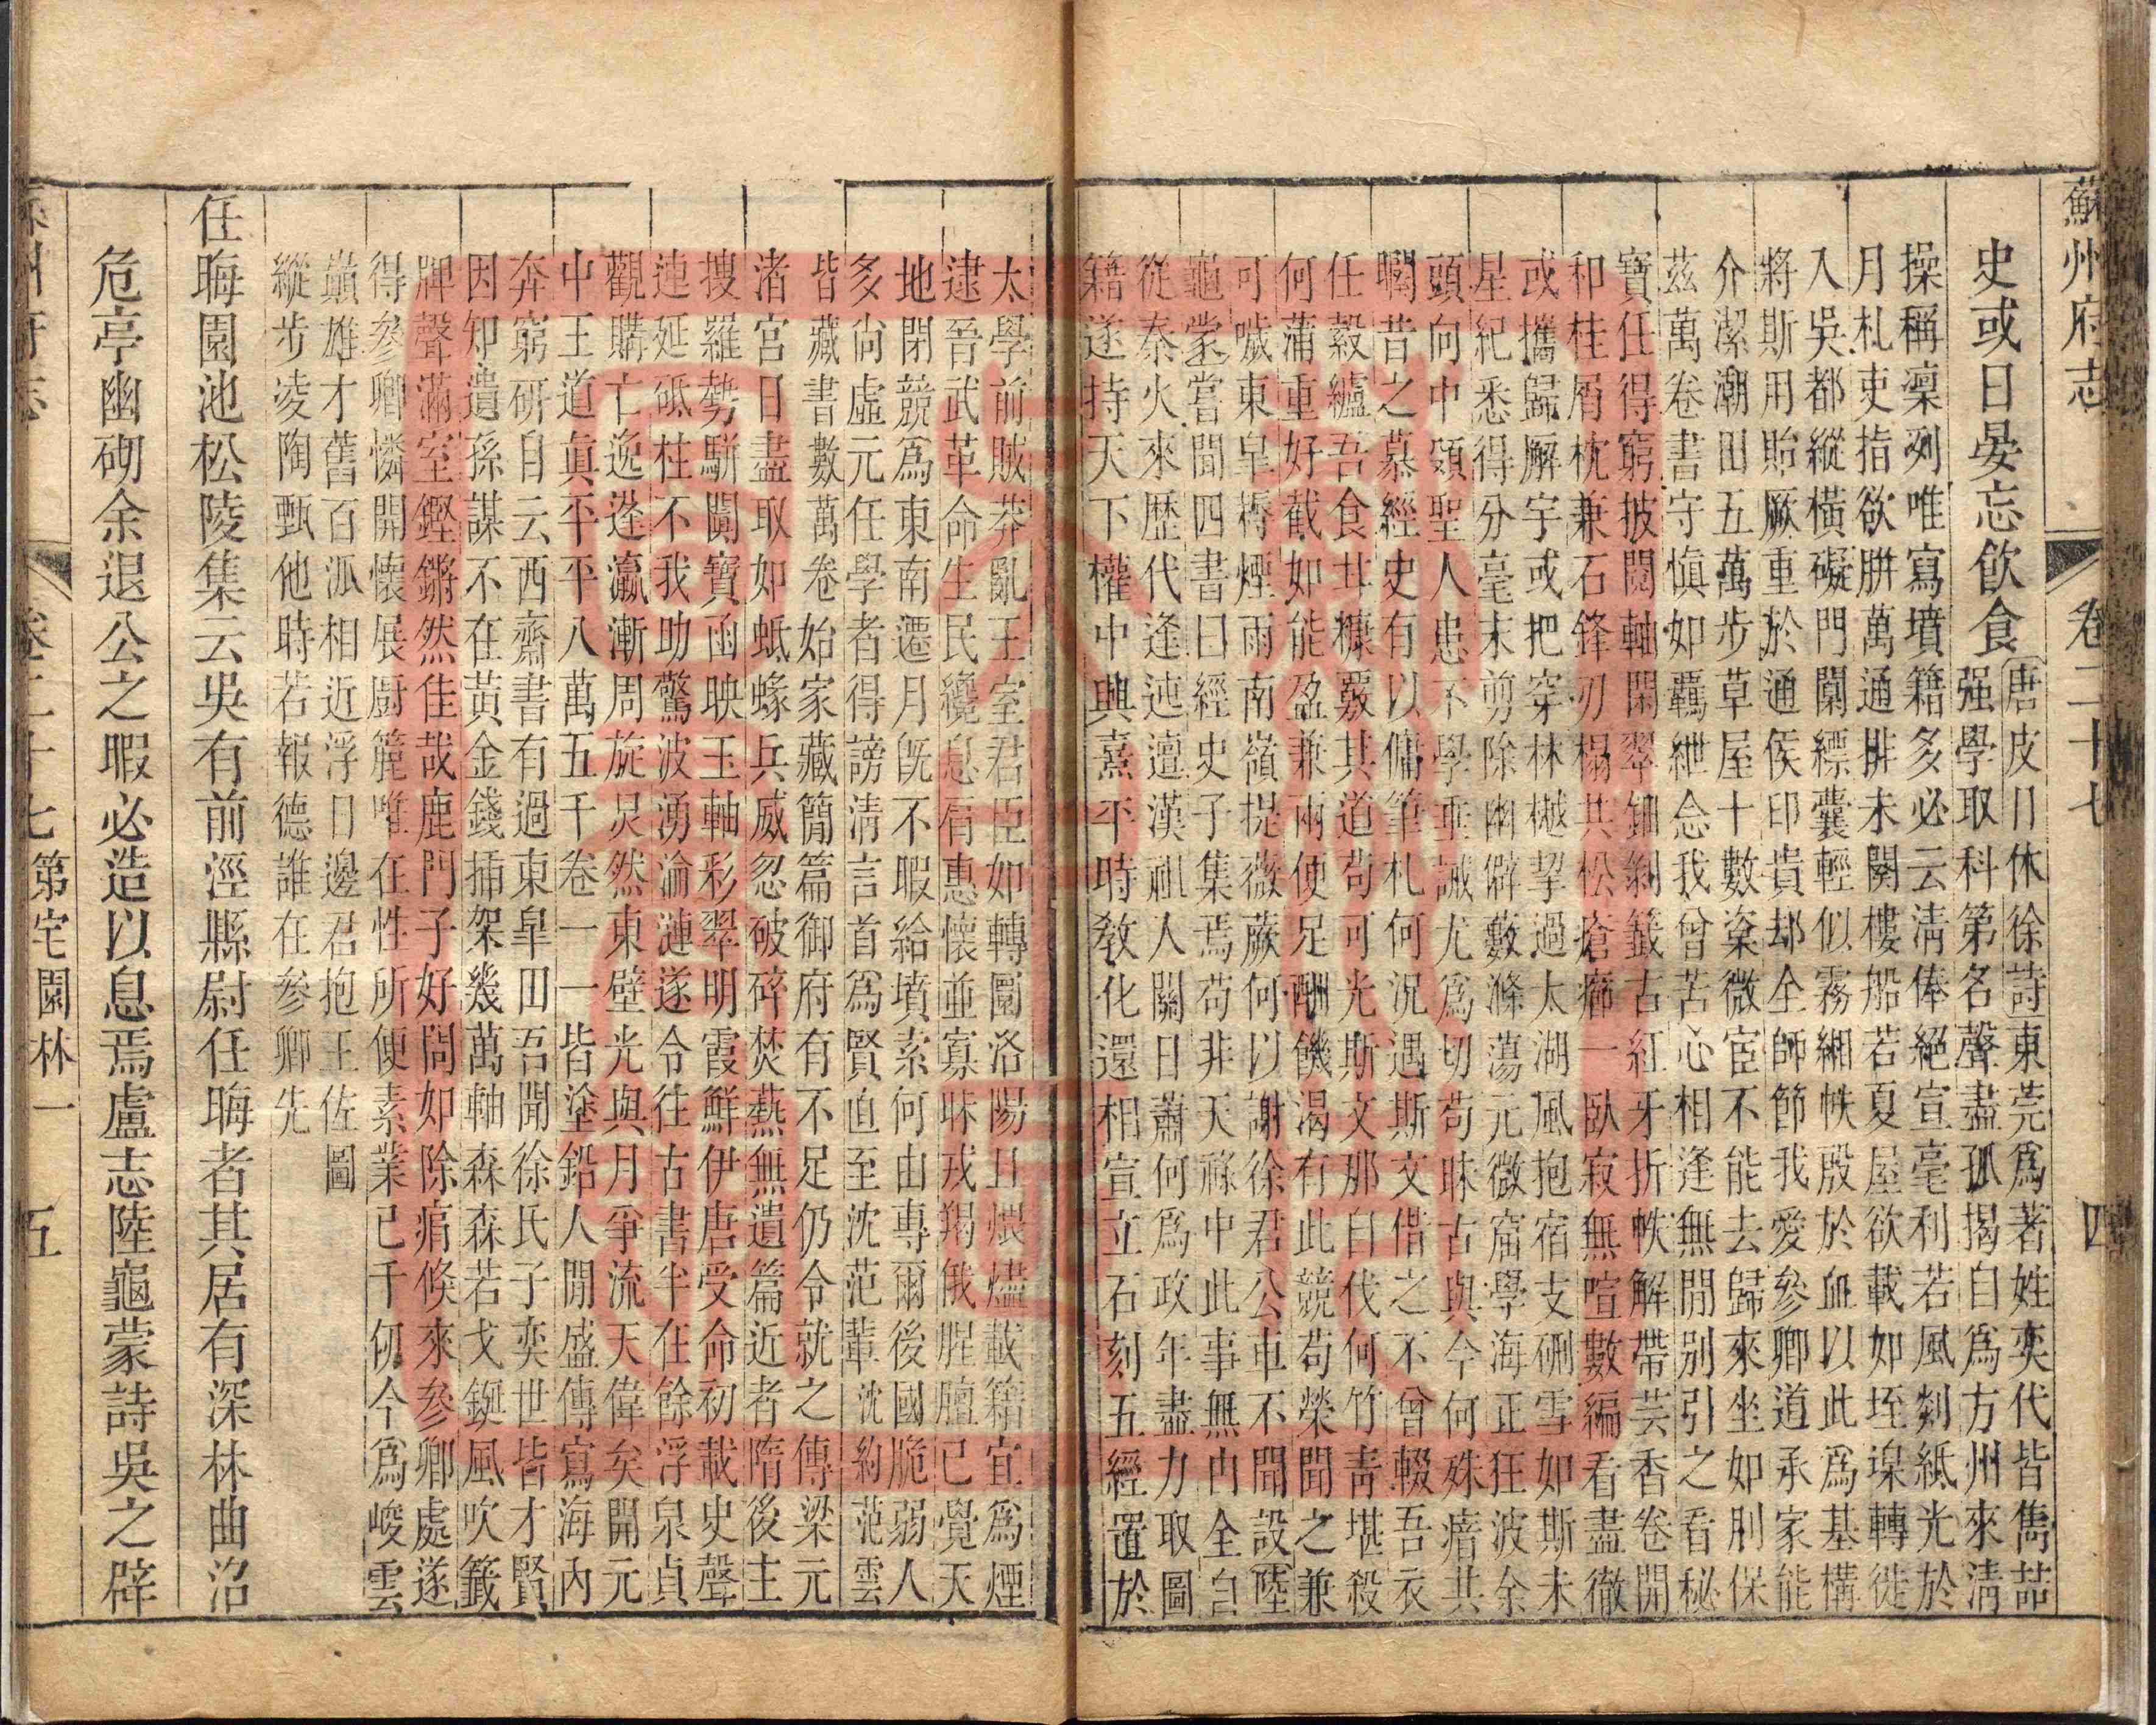 蘇州府志
卷二十七
四
史或日晏忘飲食
唐皮日休徐詩東莞爲著姓奕代皆雋喆
强學取科第名聲盡孤揭自爲方州來清
操稱凜冽唯寫墳籍多必云清俸絕宣毫利若風剡紙光於
月札吏指欲胼萬通排未闋樓船若夏屋欲載如垤堁轉徙
入吳都縱橫礙門闌縹囊輕似霧緗帙殷於血以此爲基構
將斯用貽厥重於通侯印貴却全師節我愛參卿道承家能
介潔潮田五萬步草屋十數楶微宦不能去歸來坐如刖保
茲萬卷書守愼如羈紲念我曾苦心相逢無閒別引之看秘
寶任得窮披閱軸閒翠鈿剝籤古紅牙折帙解帶芸香卷開
和桂屑枕兼石鋒刃榻共松瘡癤一臥寂無喧數編看盡徹
或攜歸廨宇或把穿林樾挈過太湖風抱宿支硎雪如斯未
星紀悉得分毫末剪除幽僻藪滌蕩元微窟學海正狂波余
頭向中頞聖人患不學垂誡尤爲切苟昧古與今何殊瘖共
聵昔之慕經史有以傭筆札何況遇斯文借之不曾輟吾衣
任縠纑吾食甘糠覈其道苟可光斯文那自伐何竹靑堪殺
何蒲重好截如能盈兼兩便足酬饑渴有此競苟榮聞之兼
可噦東皋耨煙雨南嶺提薇蕨何以謝徐君公車不聞設陸
龜蒙嘗聞四書曰經史子集焉苟非天祿中此事無由全自
從秦火來歷代逢迍邅漢祖入關日蕭何爲政年盡力取圖
籍遂持天下權中興熹平時敎化還相宣立石刻五經置於
太學前賊莽亂王室君臣如轉圜洛陽且煨燼載籍宜爲煙
逮晉武革命生民纔息肩惠懷並寡昧戎羯俄腥膻已覺天
地閉競爲東南遷月旣不暇給墳索何由專爾後國脆弱人
多尙虛元任學者得謗淸言首爲賢直至沈范輩沈約范雲
皆藏書數萬卷始家藏簡篇御府有不足仍令就之傳梁元
渚宮日盡取如蚳蝝兵威忽破碎焚爇無遺篇近者隋後主
搜羅勢駢闐寶函映玉軸彩翠明霞鮮伊唐受命初載史聲
連延砥柱不我助驚波湧淪漣遂令往古書半在餘浮泉貞
觀購亡逸蓬瀛漸周旋炅然東壁光與月爭流天偉矣開元
中王道眞平平八萬五千卷一一皆塗鉛人閒盛傳寫海內
奔窮研目云西齋書有過東皐田吾聞徐氏子奕世皆才賢
因知遺孫謀不在黃金錢插架幾萬軸森森若戈鋋風吹籤
牌聲滿室鏗鏘然佳哉鹿門子好問如除痟倏來參卿處遂
得參卿憐開懷展厨簏唯在性所便素業已千仞今爲峻雲
巔雄才舊百派相近浮日邊君抱王佐圖
縱步凌陶甄他時若報德誰在參卿先
任晦園池松陵集云吳有前涇縣尉任晦者其居有深林曲沼
危亭幽砌余退公之暇必造以息焉盧志陸龜蒙詩吳之辟
蘇州府志
卷二十七第宅園林一
五